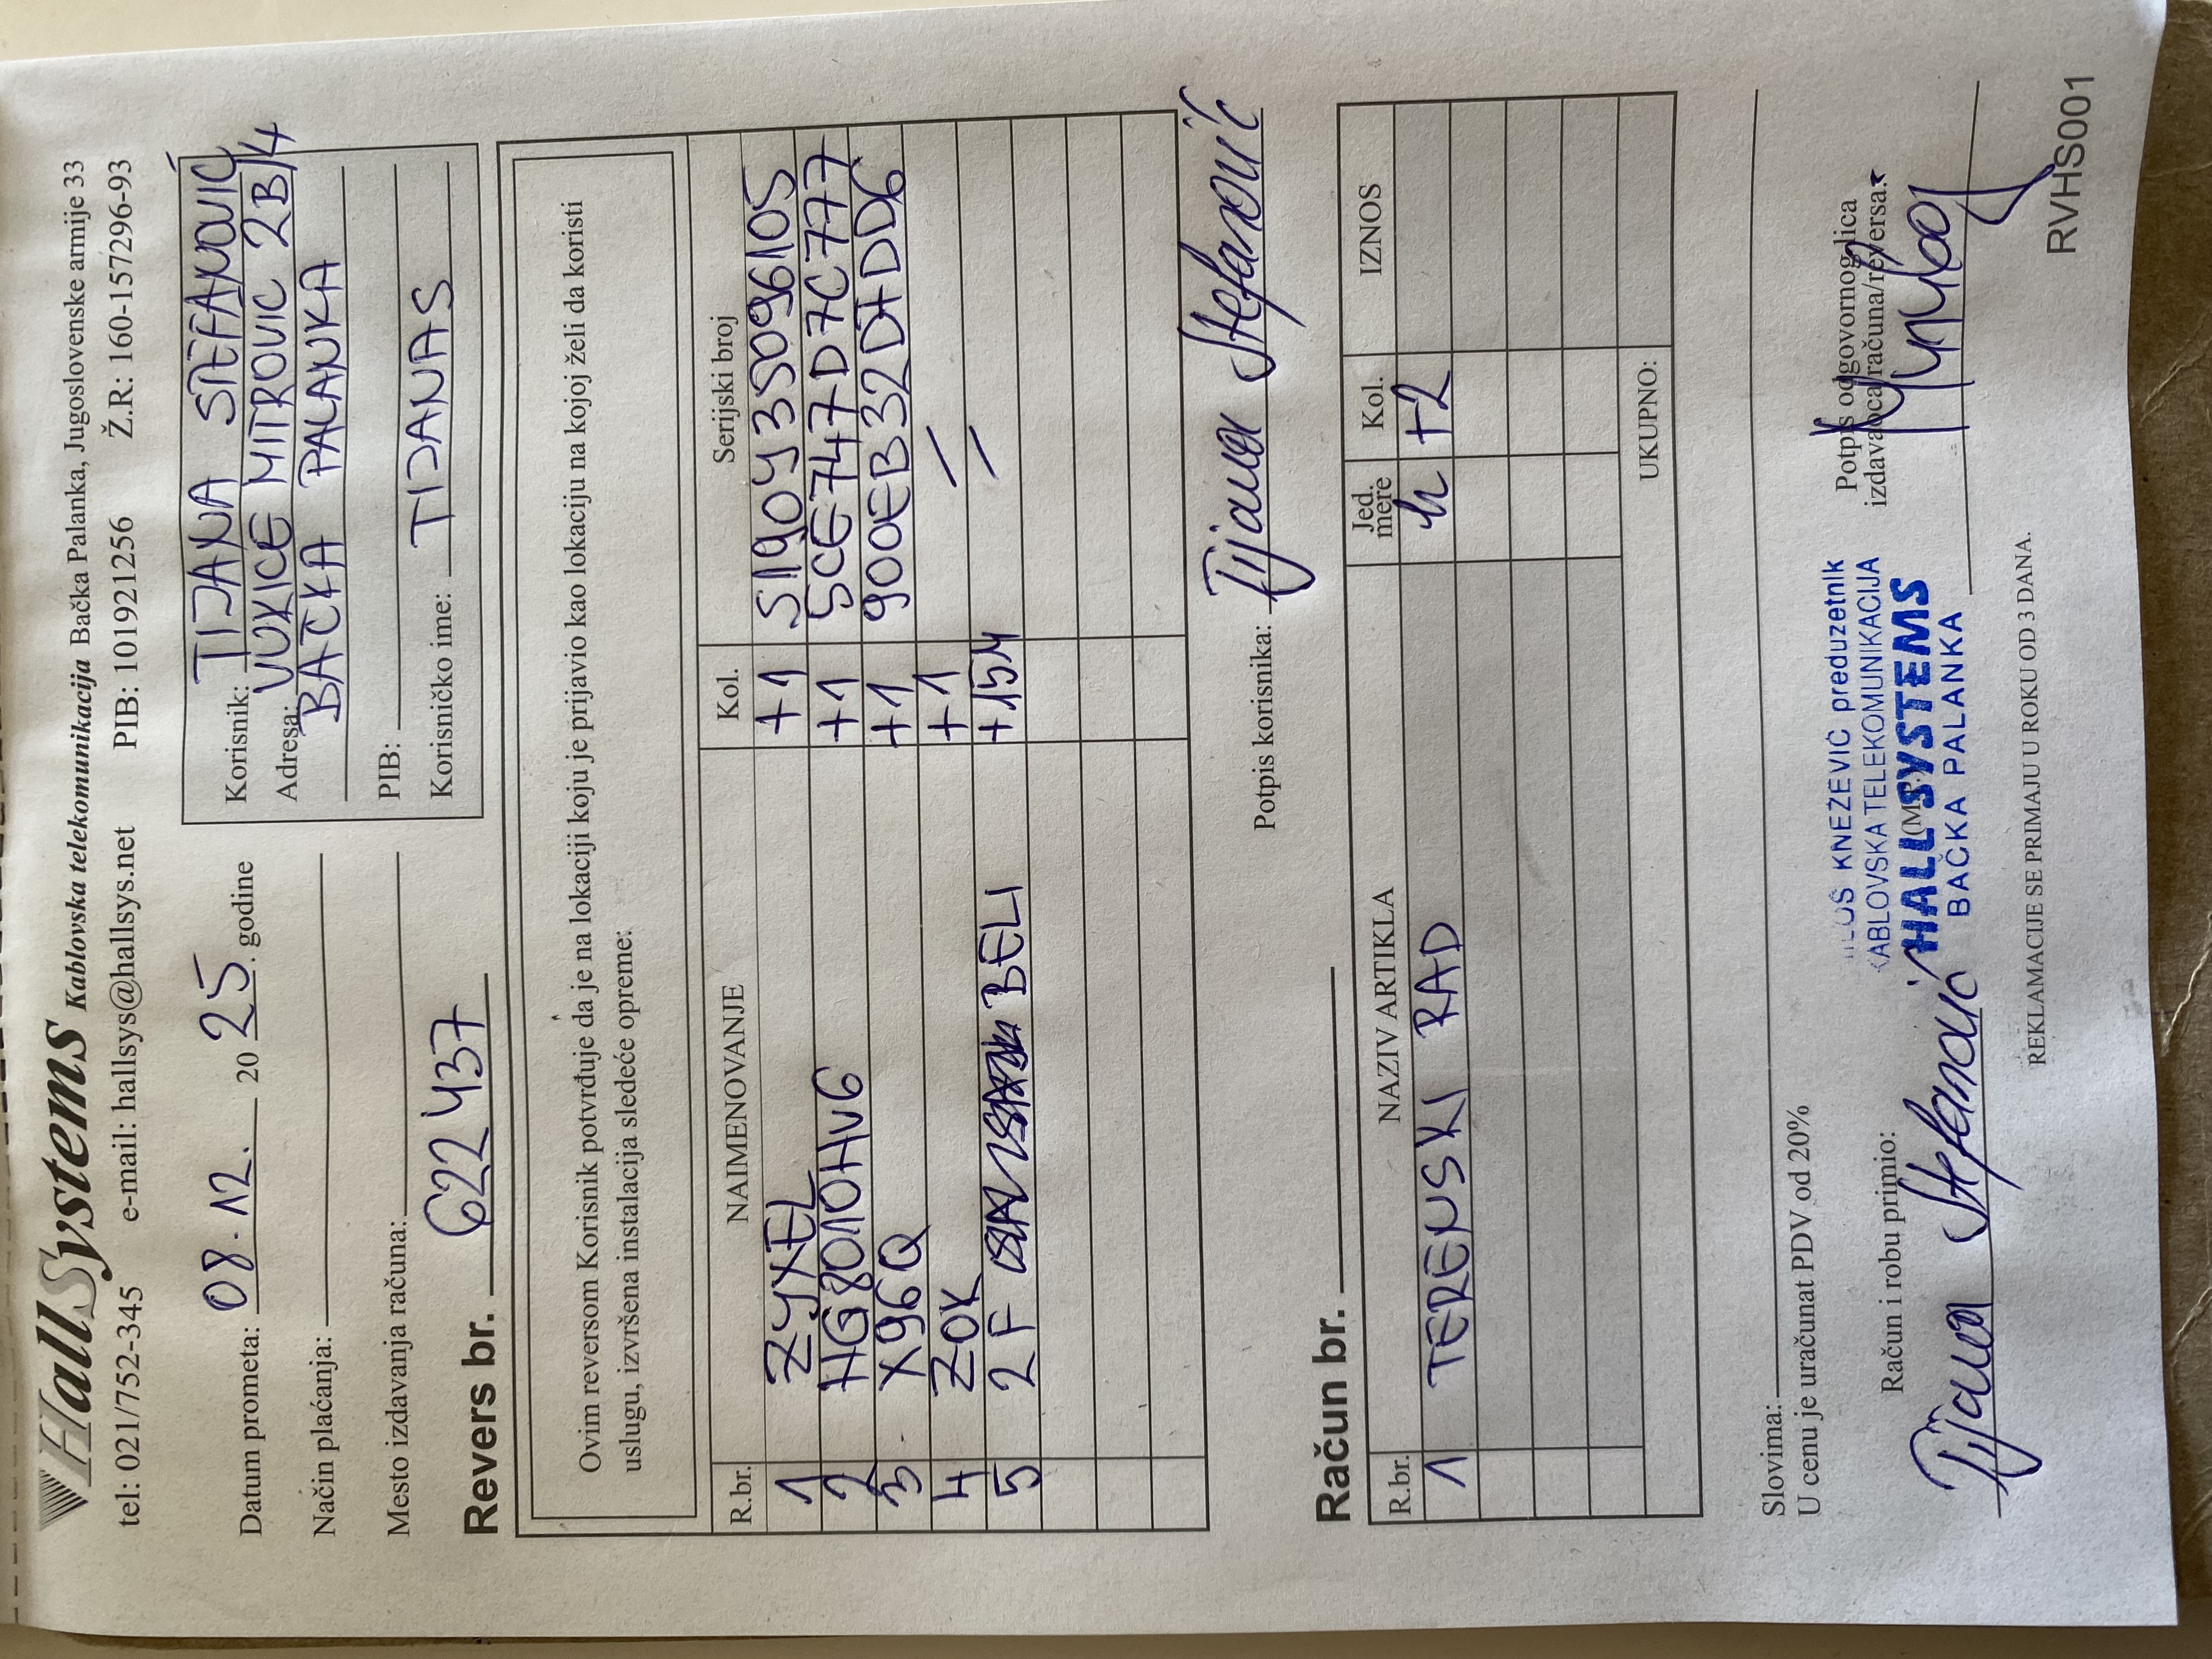 HallSystems Kablovska telekomunikacija Bačka Palanka, Jugoslovenske armije 33
tel: 021/752-345 e-mail: hallsys@hallsys.net PIB: 101921256 Ž.R: 160-157296-93
Datum prometa: 08.12. 2025. godine
Način plaćanja:
Mesto izdavanja računa:
Korisnik: TIJANA STEFANOVIĆ
Adresa: VUKICE MITROVIC 2B/4
BAČKA PALANKA
PIB:
Korisničko ime: TIJANAS
Revers br. 622437
Ovim reversom Korisnik potvrđuje da je na lokaciji koju je prijavio kao lokaciju na kojoj želi da koristi
uslugu, izvršena instalacija sledeće opreme:
R.br. NAIMENOVANJE Kol. Serijski broj
1 ZYXEL +1 S190Y35096105
2 HG8010HV6 +1 5CE747D7C777
3. X96Q +1 900EB32D1DD6
4 ZOK +1 //
5 2F BELI +15M
Potpis korisnika: Tijana Stefanović
Račun br.
R.br. NAZIV ARTIKLA Jed. mere Kol. IZNOS
1 TERENSKI RAD h +2
UKUPNO:
Slovima:
U cenu je uračunat PDV od 20%
Račun i robu primio:
Tijana Stefanović
(M.P.)
KNEŽEVIĆ preduzetnik
KABLOVSKA TELEKOMUNIKACIJA
HALL SYSTEMS
BAČKA PALANKA
Potpis odgovornog lica
izdavaoca računa/reversa:
REKLAMACIJE SE PRIMAJU U ROKU OD 3 DANA.
RVHS001